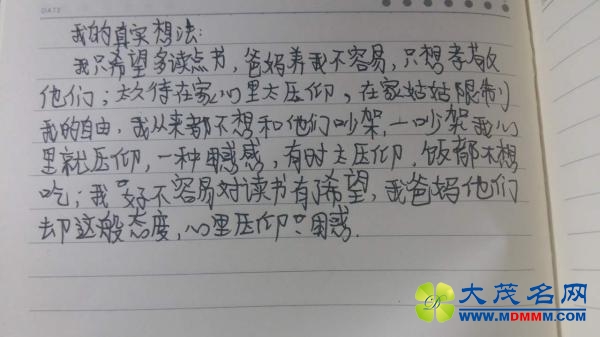 DATE
我的真实想法:
我只希望多读点书,爸妈养我不容易,只想孝敬
他们;太久待在家,心里太压仰,在家姑姑限制
我的自由,我从来都不想和他们吵架,一吵架我心
里就压仰,一种困惑感,有时太压仰,饭都不想
吃;我"好不容易对读书有了希望,我爸妈他们
却这般态度,心里压仰"困惑.
大茂名网
WWW.MDMMM.COM